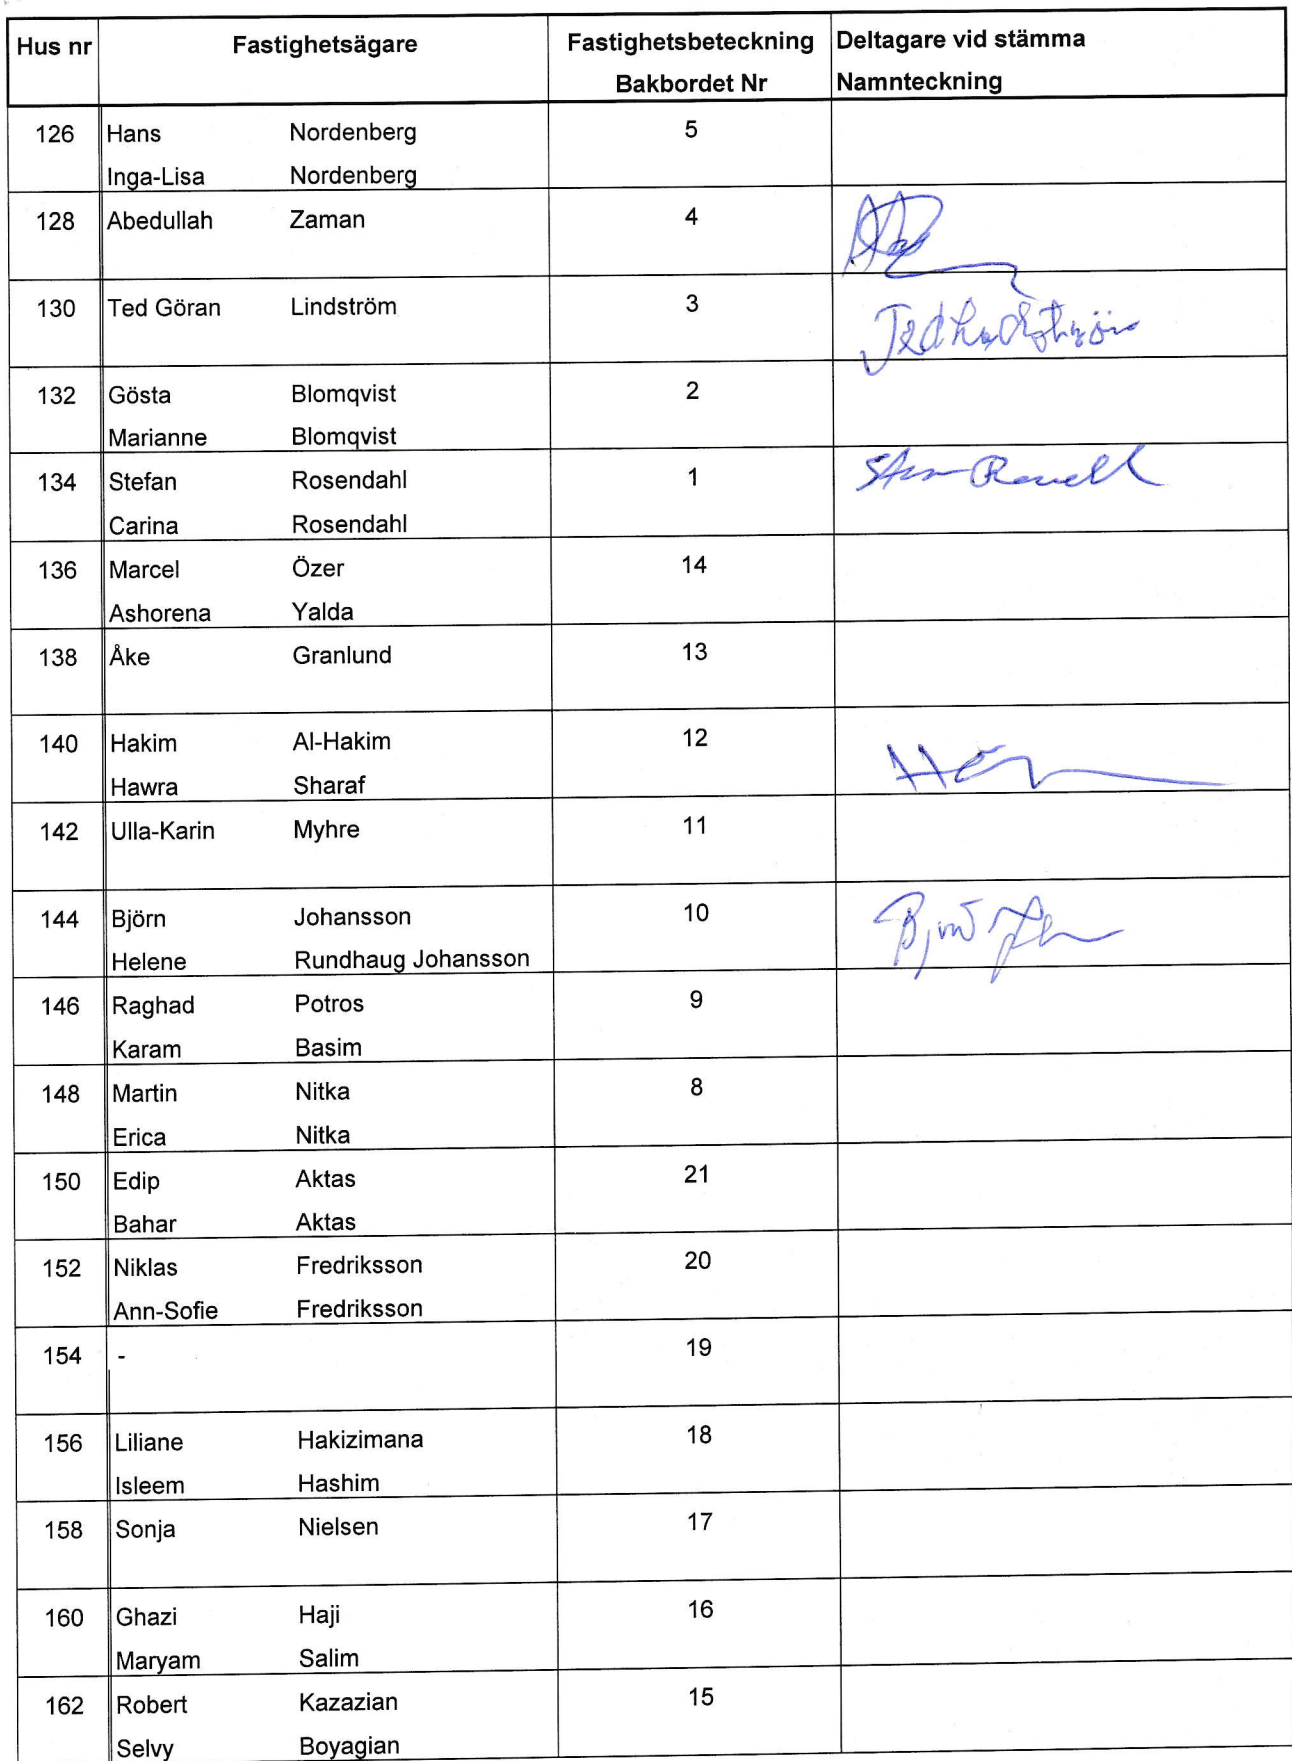 Hus nr Fastighetsägare Fastighetsbeteckning Deltagare vid stämma
Bakbordet Nr Namnteckning
126 Hans Nordenberg 5
Inga-Lisa Nordenberg
128 Abedullah Zaman 4
130 Ted Göran Lindström 3
Ted
132 Gösta Blomqvist 2
Marianne Blomqvist
134 Stefan Rosendahl 1
Carina Rosendahl
136 Marcel Özer 14
Ashorena Yalda
138 Åke Granlund 13
140 Hakim Al-Hakim 12
Hawra Sharaf
142 Ulla-Karin Myhre 11
144 Björn Johansson 10
Helene Rundhaug Johansson
146 Raghad Potros 9
Karam Basim
148 Martin Nitka 8
Erica Nitka
150 Edip Aktas 21
Bahar Aktas
152 Niklas Fredriksson 20
Ann-Sofie Fredriksson
154 - 19
156 Liliane Hakizimana 18
Isleem Hashim
158 Sonja Nielsen 17
160 Ghazi Haji 16
Maryam Salim
162 Robert Kazazian 15
Selvy Boyagian